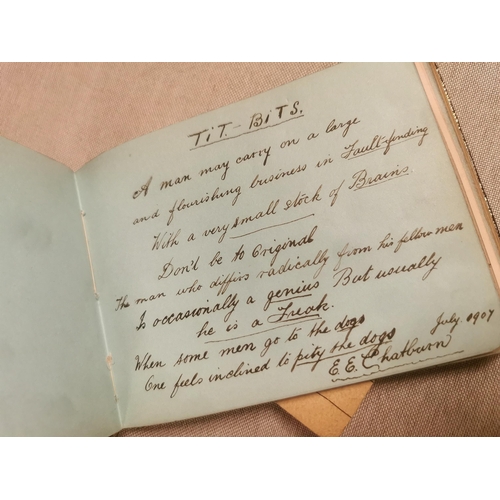 TIT-BITS.
A man may carry on a large
and flourishing business in Fault-finding
With a very small stock of Brains.
Don't be to Original
The man who differs radically from his fellow men
Is occasionally a genius But usually
he is a Freak.
When some men go to the dogs
One feels inclined to pity the dogs
July 1907
E. E. Chatburn